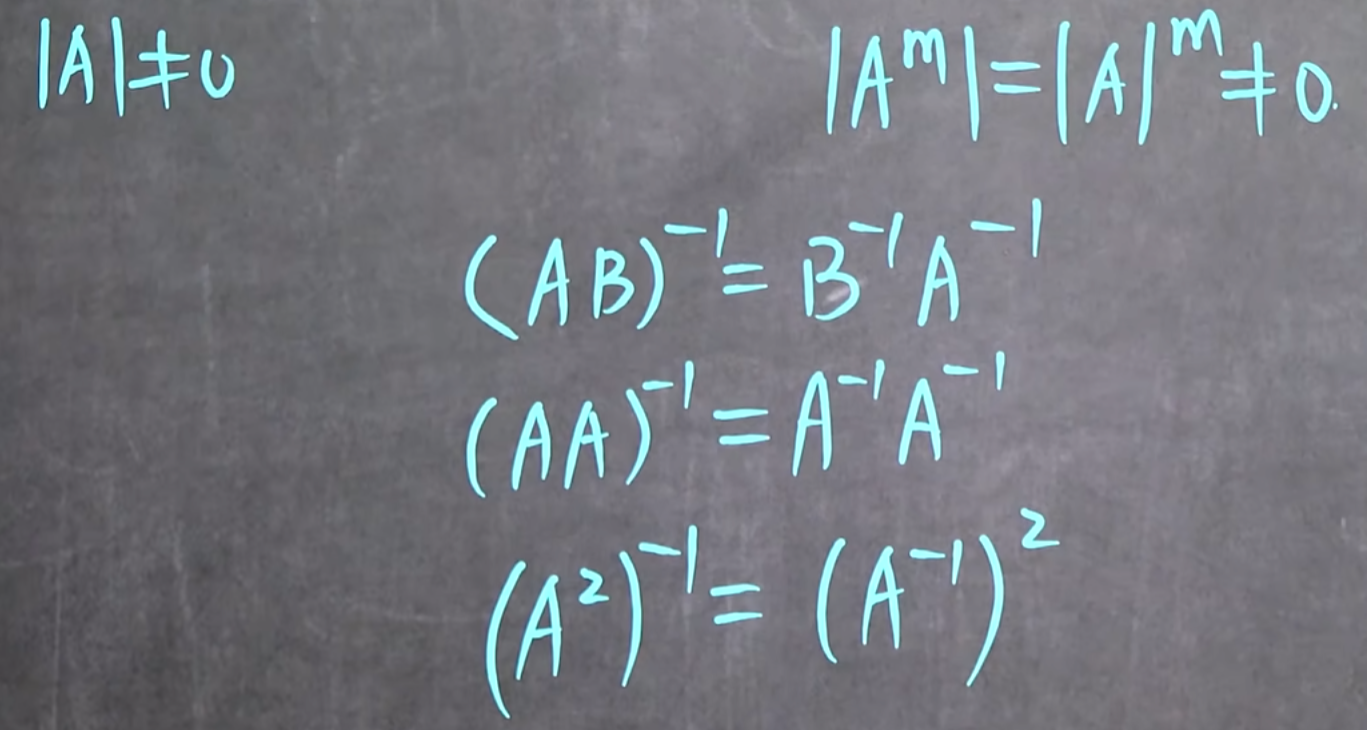 |A|≠0
|Aᵐ|=|A|ᵐ≠0.
(AB)⁻¹=B⁻¹A⁻¹
(AA)⁻¹=A⁻¹A⁻¹
(A²)⁻¹=(A⁻¹)²